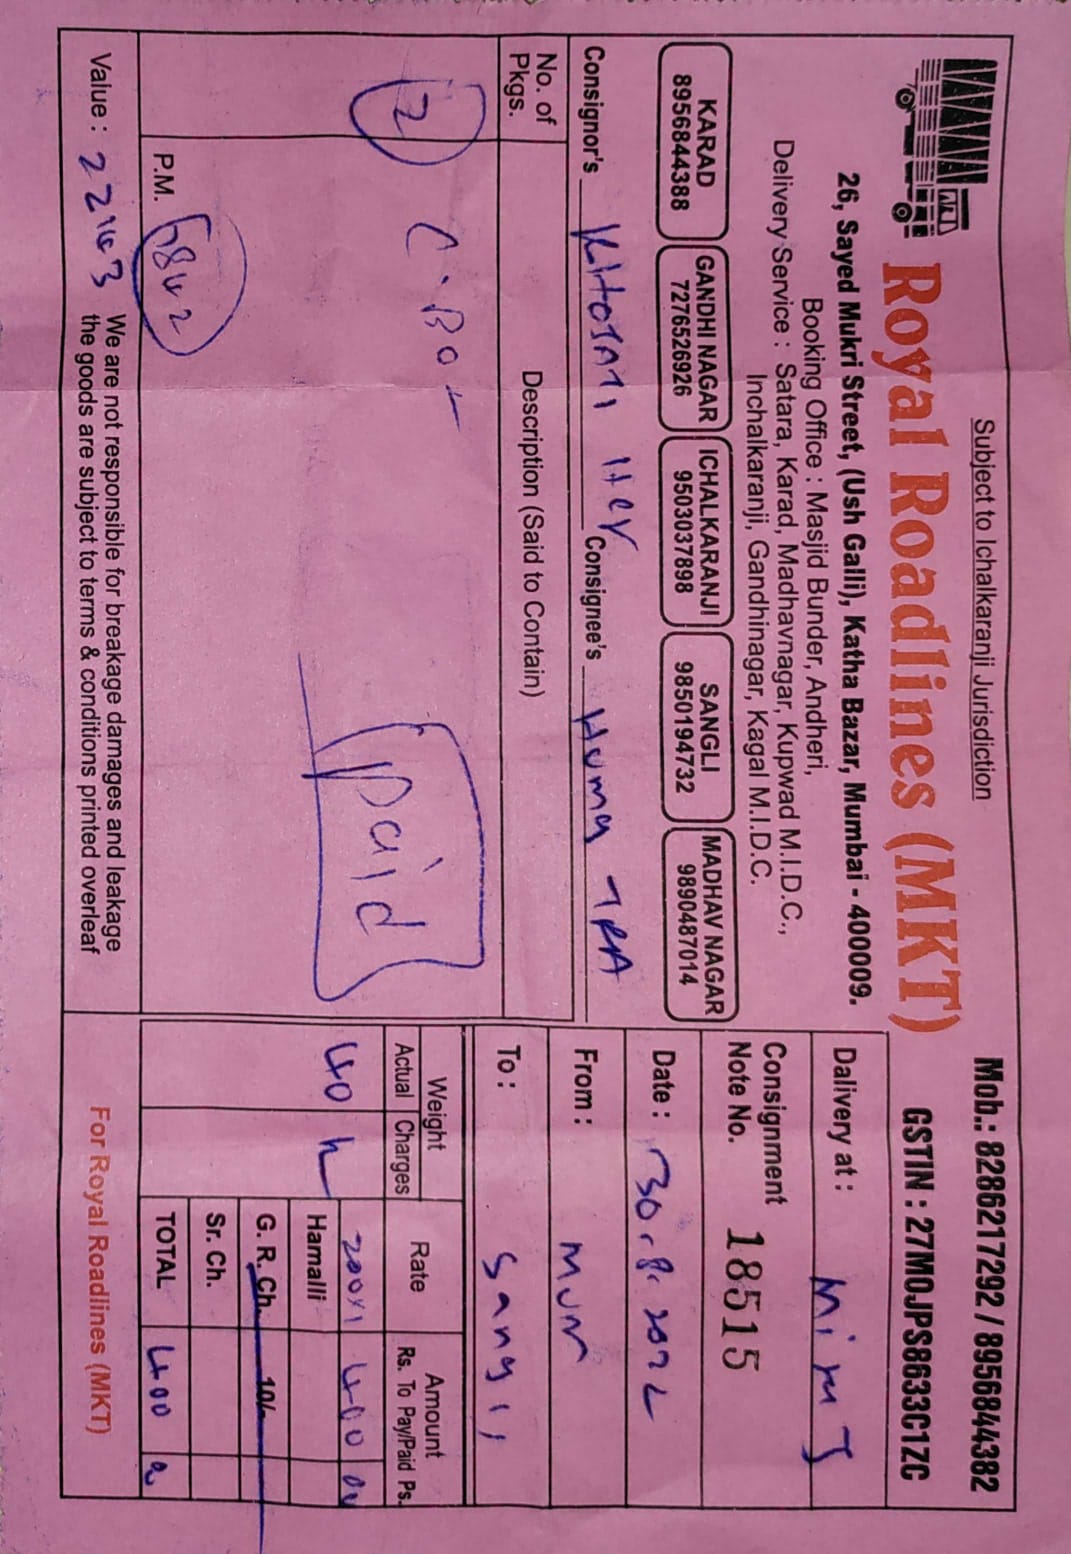 Subject to Ichalkaranji Jurisdiction
Mob.: 8286217292 / 8956844382
Royal Roadlines (MKT)
GSTIN : 27MOJPS8633C1ZC
26, Sayed Mukri Street, (Ush Galli), Katha Bazar, Mumbai - 400009.
Booking Office : Masjid Bunder, Andheri,
Delivery Service : Satara, Karad, Madhavnagar, Kupwad M.I.D.C.,
Inchalkaranji, Gandhinagar, Kagal M.I.D.C.
Dalivery at :
KARAD
8956844388
GANDHI NAGAR
7276526926
ICHALKARANJI
9503037898
SANGLI
9850194732
MADHAV NAGAR
9890487014
Consignment
Note No. 18515
Date : 30.8.2022
Consignor's Consignee's Huma TRA
From : Mum
To : Sangli
No. of
Pkgs.
Description (Said to Contain)
2
C. Box
Paid
Weight
Actual Charges
Rate
Amount
Rs. To Pay/Paid Ps.
40 400
Hamalli
G. R. Ch. 10/-
Sr. Ch.
TOTAL 400
P.M. 6842
Value :
We are not responsible for breakage damages and leakage
the goods are subject to terms & conditions printed overleaf
For Royal Roadlines (MKT)